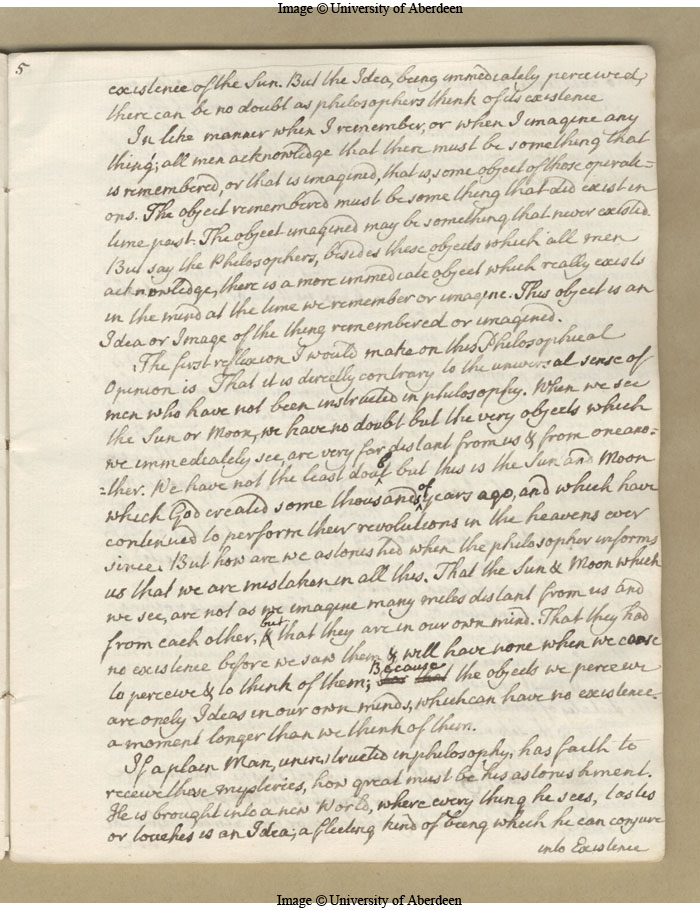 Image © University of Aberdeen
5
existence of the Sun. But the Idea, being immediately perceived,
there can be no doubt as philosophers think of its existence
In like manner when I remember, or when I imagine any
thing; all men acknowledge that there must be something that
is remembered, or that is imagined, that is, some object of those operati=
ons. The object remembered must be some thing that did exist in
time past. The object imagined may be something that never existed.
But say the Philosophers, besides these objects which all men
acknowledge, there is a more immediate object which really exists
in the mind at the time we remember or imagine. This object is an
Idea or Image of the thing remembered or imagined.
The first reflexion I would make on this Philosophical
Opinion is That it is directly contrary to the universal sense of
men who have not been instructed in philosophy. When we see
the Sun or Moon, we have no doubt but the very objects which
we immediately see, are very far distant from us & from one ano=
=ther. We have not the least doubt but this is the Sun and Moon
which God created some thousands of years ago, and which have
continued to perform their revolutions in the heavens ever
since. But how are we astonished when the philosopher informs
us that we are mistaken in all this. That the Sun & Moon which
we see, are not as we imagine many miles distant from us and
from each other, but that they are in our own mind. That they had
no existence before we saw them & will have none when we cease
to perceive & to think of them; Because the objects we perceive
are onely Ideas in our own minds, which can have no existence
a moment longer than we think of them.
If a plain Man, uninstructed in philosophy, has faith to
receive these mysteries, how great must be his astonishment.
He is brought into a new World, where every thing he sees, tastes
or touches is an Idea; a fleeting kind of being which he can conjure
into Existence
Image © University of Aberdeen